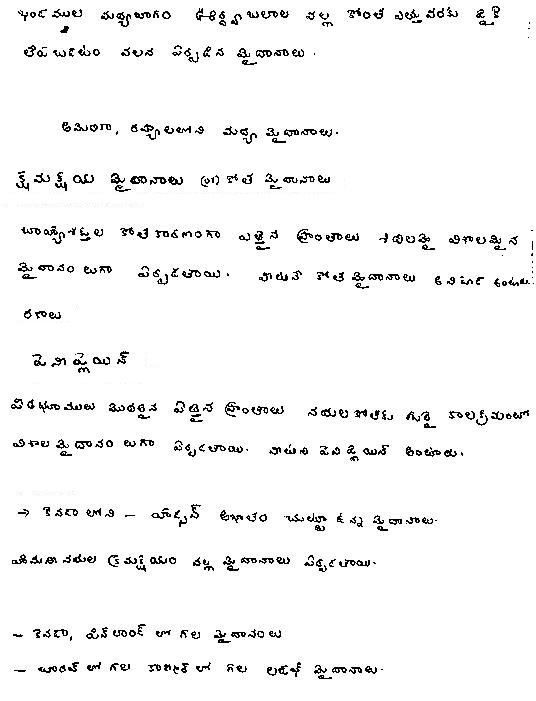 ఖండముల మధ్యభాగం ఊర్ధ్వ బలాల వల్ల కొంత ఎత్తువరకు పైకి
లేపబడటం వలన ఏర్పడిన మైదానాలు.
అమెరికా, రష్యాలలోని మధ్య మైదానాలు.
క్రమక్షయ మైదానాలు (or) కోత మైదానాలు
బాహ్యశక్తుల కోతకారణంగా ఎత్తైన ప్రాంతాలు శిథిలమై విశాలమైన
మైదానం లుగా ఏర్పడతాయి. వాటినే కోత మైదానాలు అని పిలు అంటారు.
రకాలు
పెని ప్లెయిన్
పీఠభూములు మొదలైన ఎత్తైన ప్రాంతాలు నదుల కోతకు గురై కాలక్రమంలో
విశాల మైదానం లుగా ఏర్పడతాయి. వాటిని పెని ప్లెయిన్ అంటారు.
→ కెనడా లోని - హడ్సన్ అఖాతం చుట్టూ ఉన్న మైదానాలు.
హిమానీ నదుల క్రమక్షయం వల్ల మైదానాలు ఏర్పడతాయి.
- కెనడా, ఫిన్‌లాండ్ లో గల మైదానంలు
- భారత్ లో గల కాశ్మీర్ లో గల లడఖ్ మైదానాలు.